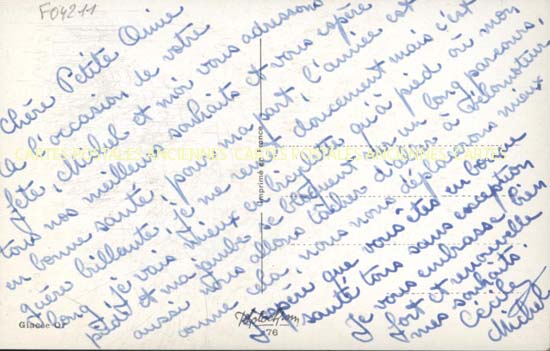 F04211
Chère Petite Amie
A l'occasion de votre
fête, Michel et moi vous adressons
tous nos meilleurs souhaits et vous espère
en bonne santé, pour ma part, l'année est
guère brillante, je me doucement mais c'est
long, je vais mieux en bicyclette qu'à pied où mon
pied et ma jambe se un long parcours,
aussi nous allons tâcher d'avoir à Vélomoteur
comme cela, nous nous déplacerons mieux
J'espère que vous êtes en bonne
santé tous sans exception
Je vous embrasse bien
fort et renouvelle
mes souhaits.
Cécile
Michel
CARTES POSTALES ANCIENNES CARTES POSTALES ANCIENNES CARTES POSTALES ANCIENNES
Imprimé en France
Glacée Or
76